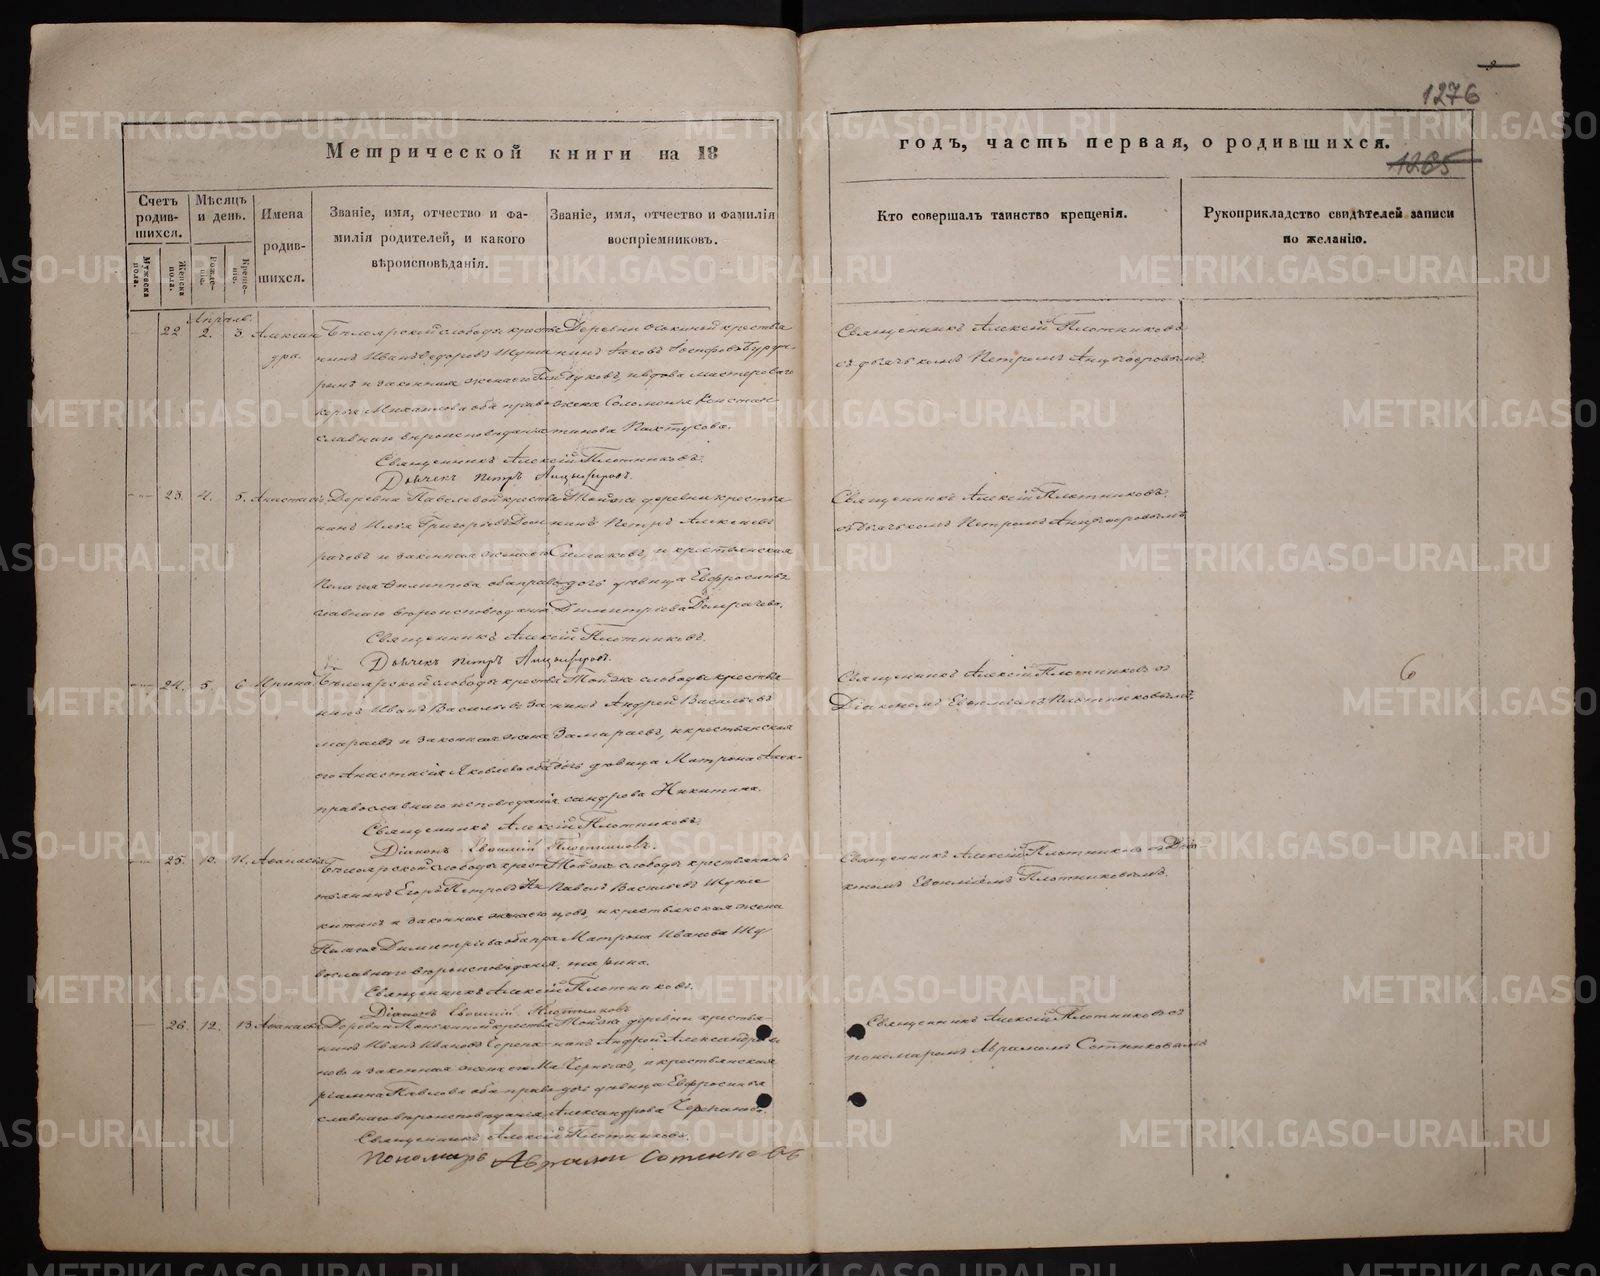 1276
Метрической книги на 18
годъ, часть первая, о родившихся.
1285
Счетъ родив-шихся.
Мѣсяцъ и день.
Имена родив-шихся.
Званіе, имя, отчество и фа-
милія родителей, и какого
вѣроисповѣданія.
Званіе, имя, отчество и фамилія
воспріемниковъ.
Кто совершалъ таинство крещенія.
Рукоприкладство свидѣтелей записи
по желанію.
Мужеска пола.
Женска пола.
Рожде-ніе.
Креще-ніе.
Апрѣль
22 2. 3. Алексан
дра.
Бѣлоярской слободы кресть
янинъ Иванъ Ѳедоровъ
и законная жена его
Михайлова оба право
славнаго вѣроисповѣданія
Священникъ Алексій Плотниковъ.
Дьячекъ Петръ Анцыферовъ.
крестья
нинъ Іаковъ Іосифовъ
и вдова мастероваго
жена Соломонія Констан
тинова Пахтусова.
Священникъ Алексій Плотниковъ
съ дьячькомъ Петромъ Анцыферовымъ.
23. 4. 5. Анастасія
Деревни кресть
янинъ Илья Григорьевъ
и законная жена его
Пелагия Филиппова оба право
славнаго вѣроисповѣданія
Священникъ Алексій Плотниковъ.
Дьячекъ Петръ Анцыферовъ.
Той же деревни крестья
нинъ Петръ Алексѣевъ
и крестьянская
дочь дѣвица Евфросинья
Димитріева
Священникъ Алексій Плотниковъ
съ Дьячькомъ Петромъ Анцыферовымъ.
24. 5. 6 Ирина.
Бѣлоярской слободы кресть
янинъ Иванъ Васильевъ За
мараевъ и законная жена
его Анастасія Яковлева оба
православнаго исповѣданія
Священникъ Алексій Плотниковъ.
Діаконъ Евѳимій Плотниковъ.
Той же слободы крестья
нинъ Андрей Васильевъ
Замараевъ, и крестьянская
дочь дѣвица Матрона Алек-
сандрова Никитина.
Священникъ Алексій Плотниковъ съ
Діакономъ Евѳиміемъ Плотниковымъ.
6
25. 10. 11. Аѳанасія
Бѣлоярской слободы крест
ьянинъ Егоръ Петровъ Ни
китинъ и законная жена его
Пелагія Димитріева оба пра
вославнаго вѣроисповѣданія.
Священникъ Алексій Плотниковъ.
Діаконъ Евѳимій Плотниковъ
Той же слободы крестьянинъ
Павелъ Васильевъ
и крестьянская жена
Матрона Иванова
Священникъ Алексій Плотниковъ съ Діа
кономъ Евѳиміемъ Плотниковымъ.
26. 12. 13. Аѳанасія
Деревни кресть
янинъ Иванъ Ивановъ Черепа
новъ и законная жена его Ма
ріамна Павлова оба право
славнаго вѣроисповѣданія
Священникъ Алексій Плотниковъ.
Пономарь Аврамій Сотниковъ
Той же деревни крестья
нинъ Андрей Александровъ
Черныхъ, и крестьянская
дочь дѣвица Евфросинья
Александрова Черепанова.
Священникъ Алексій Плотниковъ съ
пономаремъ Аврамомъ Сотниковымъ
METRIKI.GASO-URAL.RU